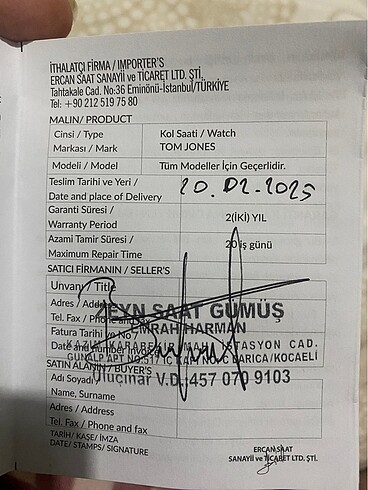 İTHALATÇI FİRMA / IMPORTER'S
ERCAN SAAT SANAYİİ ve TİCARET LTD. ŞTİ.
Tahtakale Cad. No:36 Eminönü-İstanbul/TÜRKİYE
Tel: +90 212 519 75 80
MALIN/ PRODUCT
Cinsi / Type Kol Saati / Watch
Markası / Mark TOM JONES
Modeli / Model Tüm Modeller İçin Geçerlidir.
Teslim Tarihi ve Yeri / 20.02-2025
Date and place of Delivery
Garanti Süresi / 2(İKİ) YIL
Warranty Period
Azami Tamir Süresi / 20 iş günü
Maximum Repair Time
SATICI FİRMANIN / SELLER'S
Unvanı / Title
ZEYN SAAT GÜMÜŞ
Adres / Address
EMRAH HARMAN
Tel. Fax / Phone and fax
Fatura Tarihi ve No /
KARABEKİR MAH. İSTASYON CAD.
Date and number invoice
GÜNALP APT NO:517 İÇ KAPI NO: DARICA/KOCAELİ
SATIN ALANIN / BUYER'S
Uluçınar V.D.:457 070 9103
Adı Soyadı /
Name, Surname
Adres / Address
Tel. Fax / Phone and fax
TARİH/ KAŞE/ İMZA
DATE/ STAMPS/ SIGNATURE
ERCAN SAAT
SANAYİİ ve TİCARET LTD. ŞTİ.